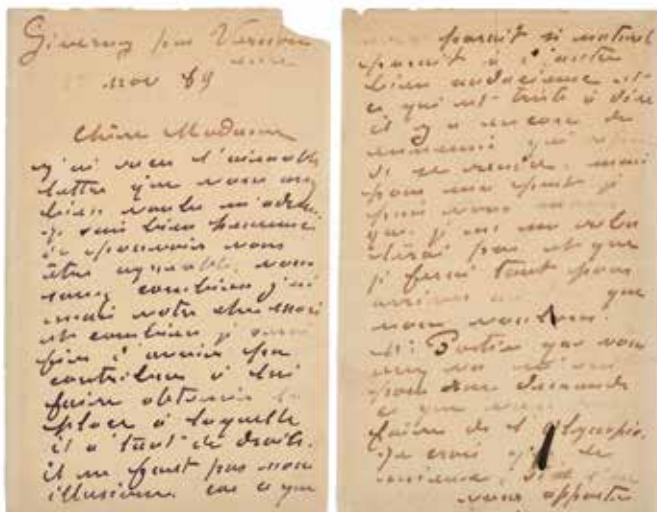 Giverny par Vernon
nov 89
Chère Madame
j'ai reçu l'aimable
lettre que vous avez
bien voulu
je suis bien heureux
de pouvoir vous
être agréable, vous
savez combien j'ai
aimé votre cher mari
et combien je serai
fier d'avoir pu
contribuer à lui
faire obtenir la
place à laquelle
il a tant de droits.
il ne faut pas nous
illusionner car ce que
parait si naturel
parait à d'autre
bien audacieux et
ce qui est triste à dire
il y a encore de
qui
de se rendre, mais
pour ma part je
puis vous
que je ne me
pas et que
je ferai tout pour
arriver que
nous voulons.
M. Portier que vous
avez vu
pour me demander
ce que
faire de l'Olympia.
Je crois de
vous apporter